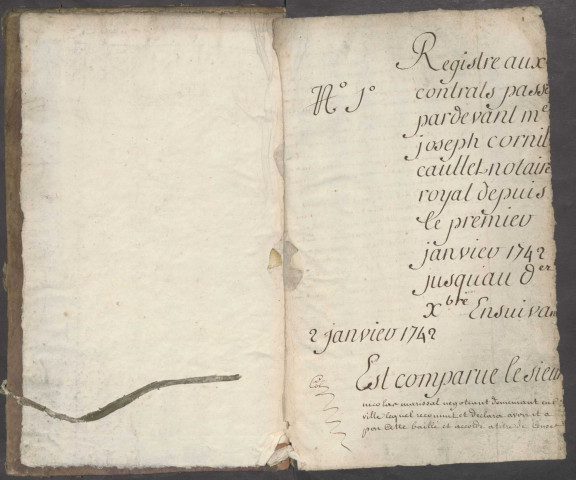 Registre aux
N.o 1.o contrats passé
pardevant m.e
joseph cornil
caullet notaire
royal depuis
le premier
janvier 1742
jusquau d.er
X.bre Ensuivan
2 janvier 1742
Est comparue le sieur
nicolas marissal negotiant demeurant en
ville lequel reconnut et declara avoir et a
par cette baille et accorde a titre de